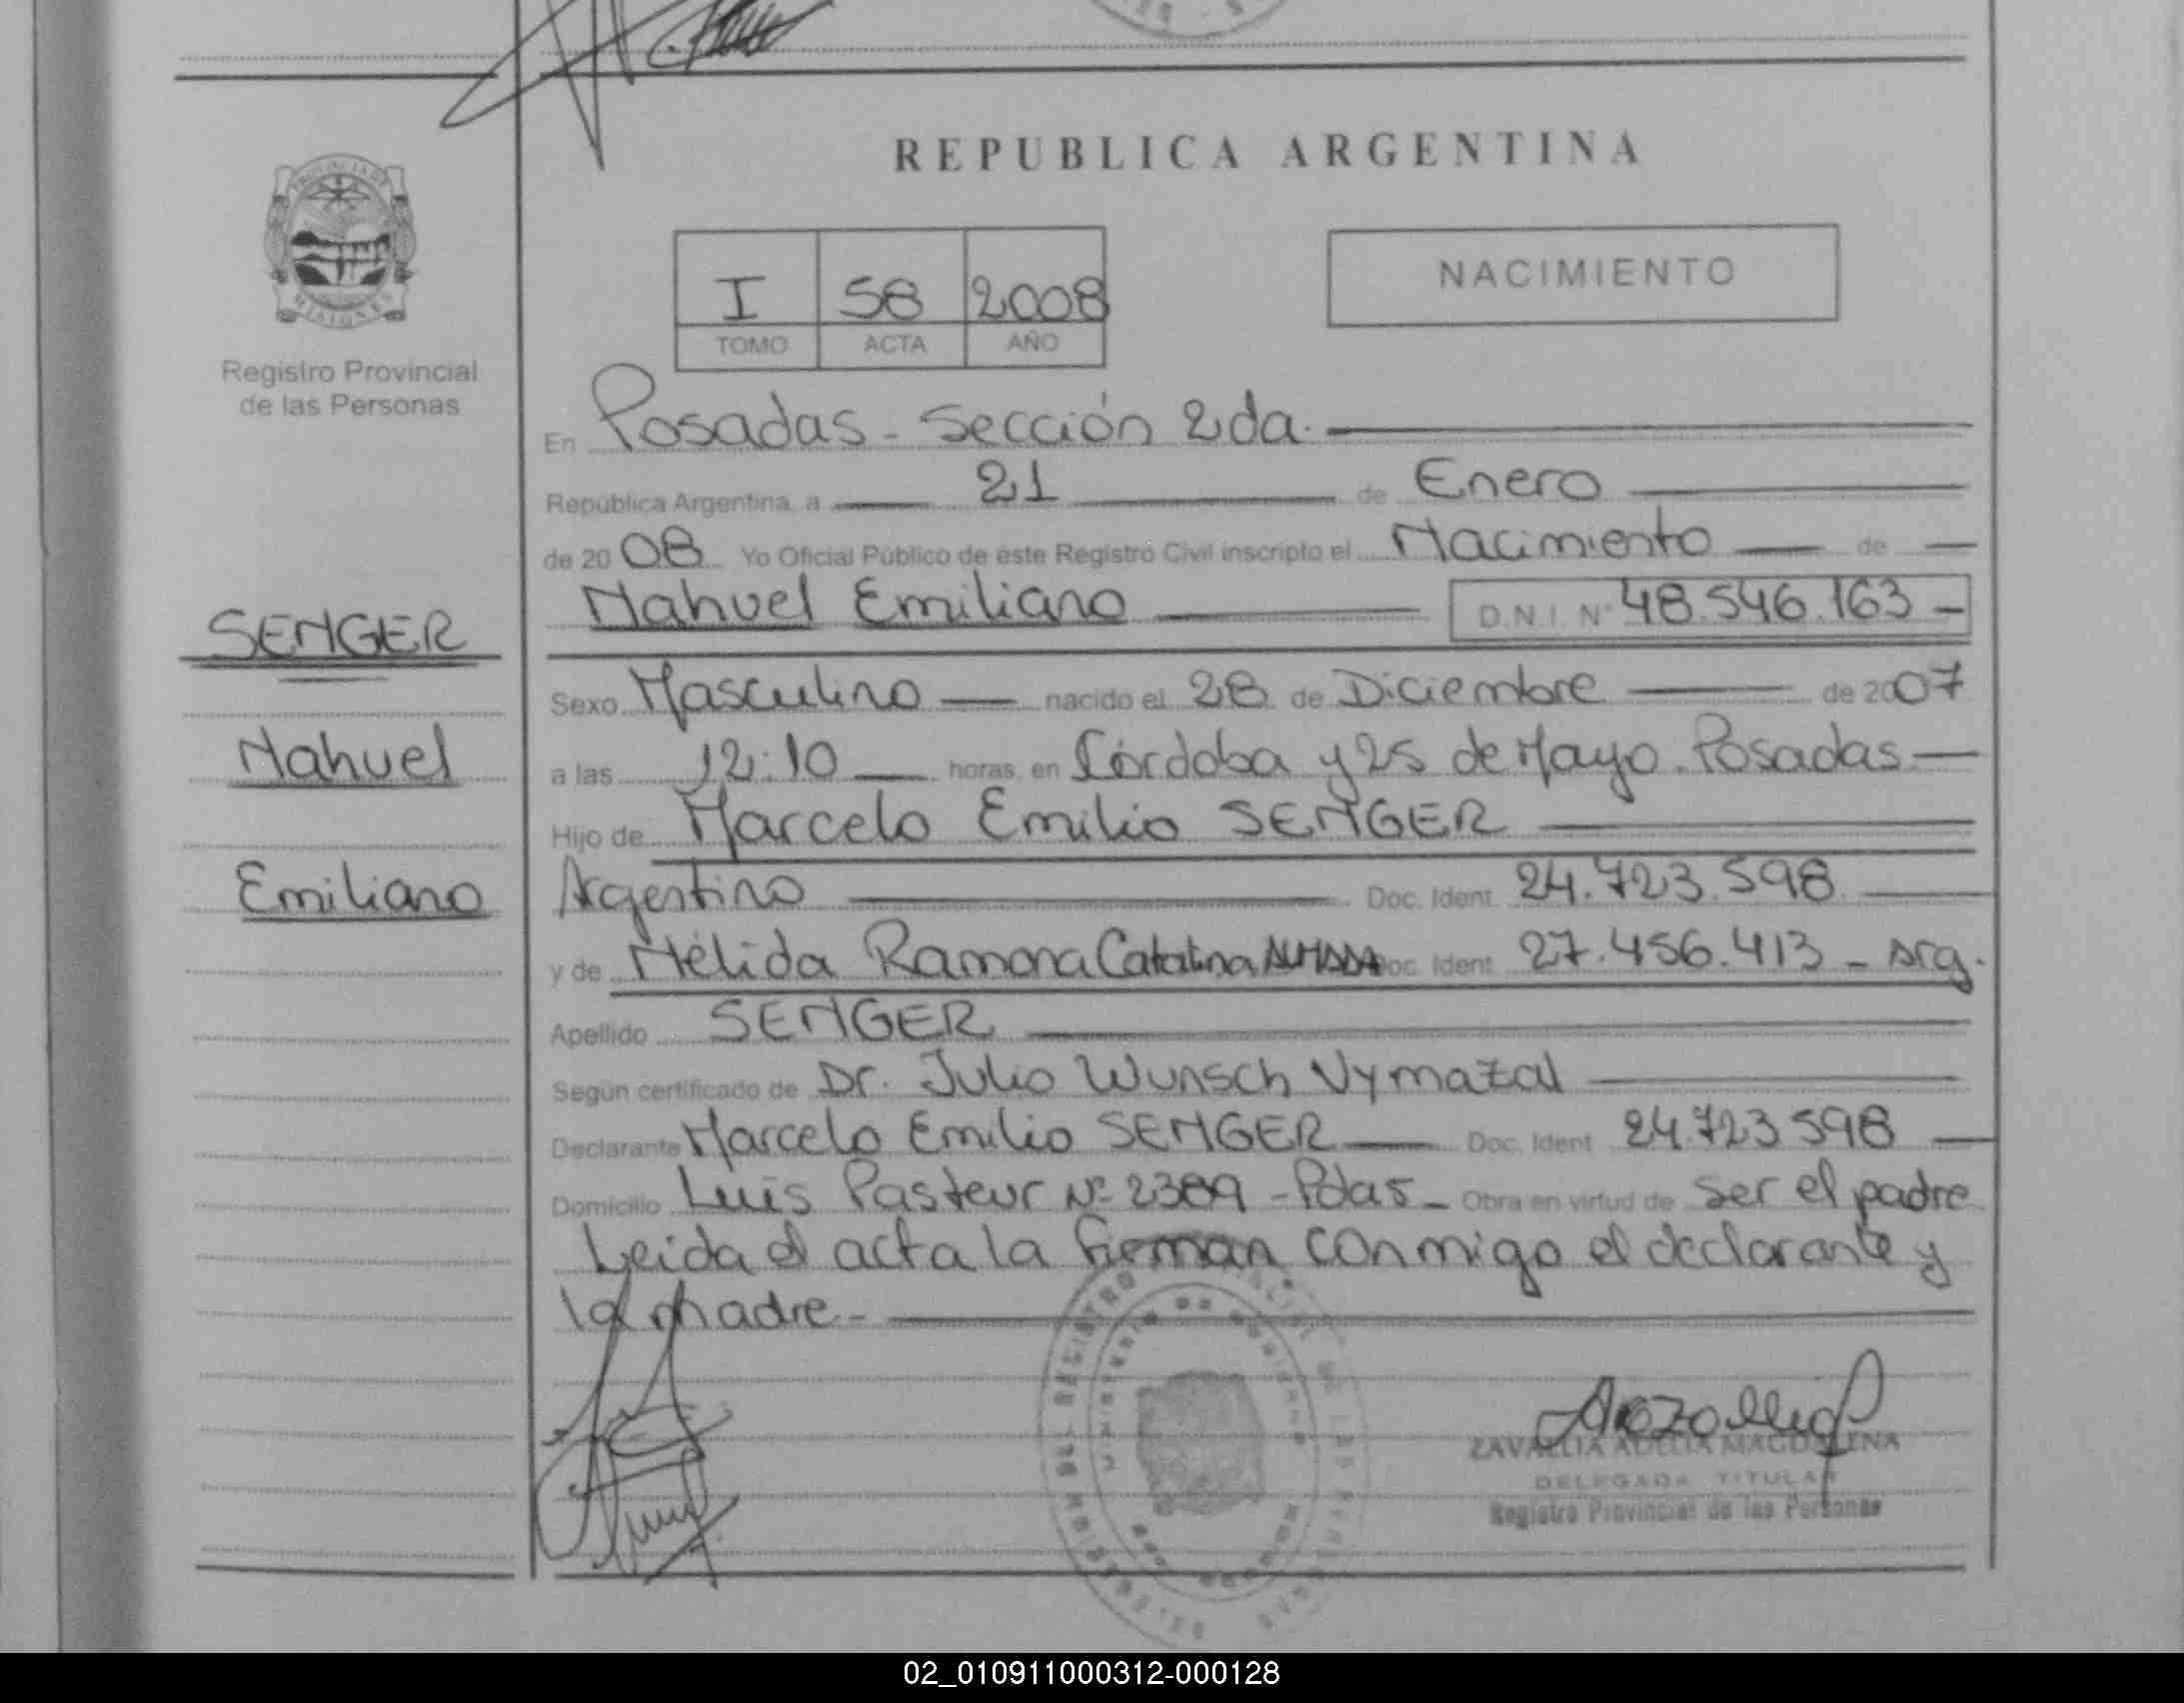 REPUBLICA ARGENTINA
PROVINCIA DE
MISIONES
Registro Provincial
de las Personas
NACIMIENTO
I 58 2008
TOMO ACTA AÑO
En Posadas - Sección 2da.
República Argentina, a 21 de Enero
de 2008 Yo Oficial Público de este Registro Civil inscripto el Nacimiento de
Nahuel Emiliano D.N.I. Nº 48.546.163
SENGER
Nahuel
Emiliano
Sexo Masculino nacido el 28 de Diciembre de 2007
a las 12:10 horas, en Córdoba y 25 de Mayo. Posadas
Hijo de Marcelo Emilio SENGER
Argentino Doc. Ident. 24.723.598
y de Nélida Ramona Catalina ALMADA Doc. Ident. 27.456.413 - Arg.
Apellido SENGER
Según certificado de Dr. Julio Wunsch Vymazal
Declarante Marcelo Emilio SENGER Doc. Ident. 24.723.598
Domicilio Luis Pasteur Nº 2389 - Pdas - Obra en virtud de ser el padre
Leida el acta la firman conmigo el declarante y
la madre.-
ZAVALLIA ADELIA MAGDALENA
DELEGADA TITULAR
Registro Provincial de las Personas
02_010911000312-000128